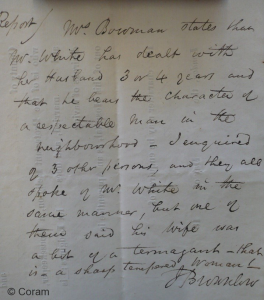 Report / Mrs. Bowman states that
Mr. White has dealt with
her Husband 3 or 4 years and
that he bears the character of
a respectable man in the
neighbourhood – I enquired
of 3 other persons, and they all
spoke of Mr. White in the
same manner, but one of
them said his wife was
a bit of a termagant – that
is – a sharp tempered Woman
J Brownlow
© Coram